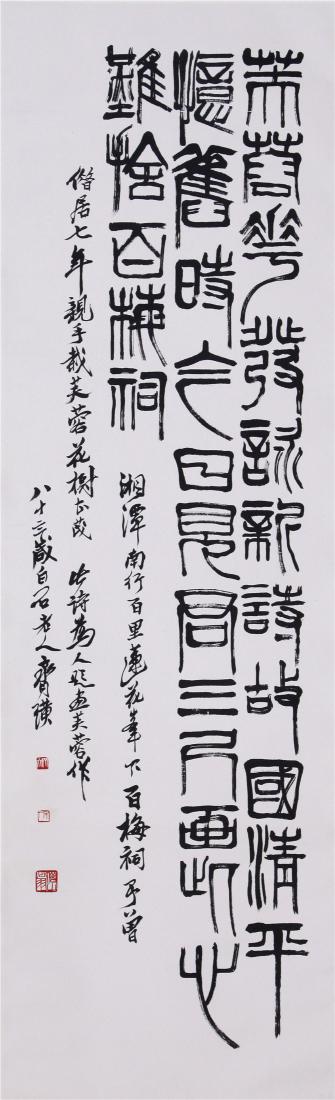 芙蓉花發詠新詩故國清平
憶舊時今日見君三尺畫此心
難捨百梅祠
湘潭南行百里蓮花峯下百梅祠予曾
僭居七年親手栽芙蓉花樹正茂 此詩為人題畫芙蓉作
八十三歲白石老人齊璜